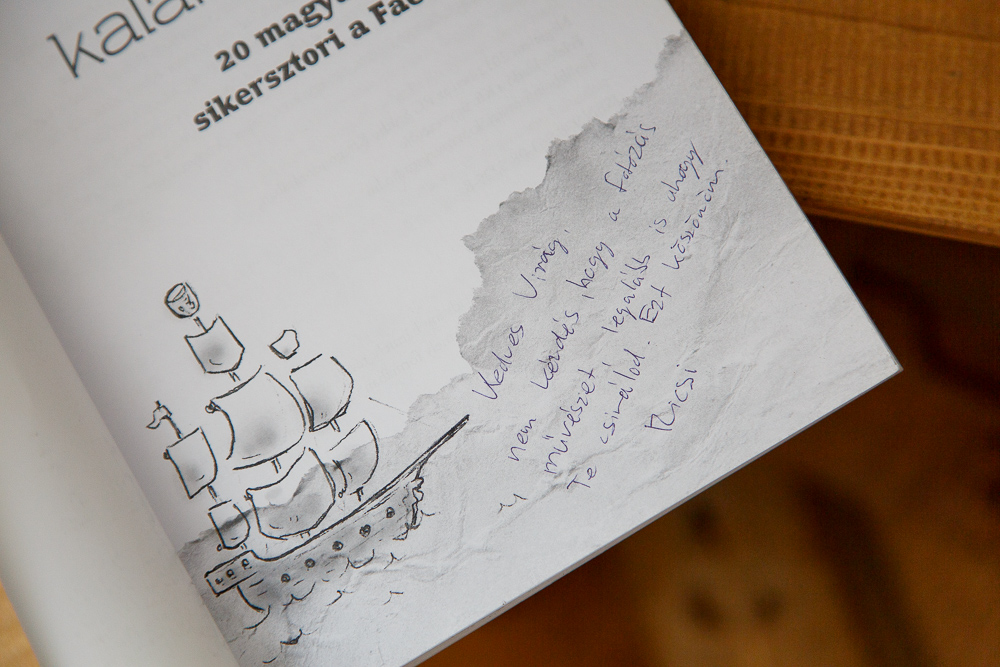 kala
20 magya
sikersztori a Fac
Kedves Virág,
nem kérdés, hogy a fotózás
művészet legalább is ahogy
Te csinálod. Ezt köszönöm.
Ricsi